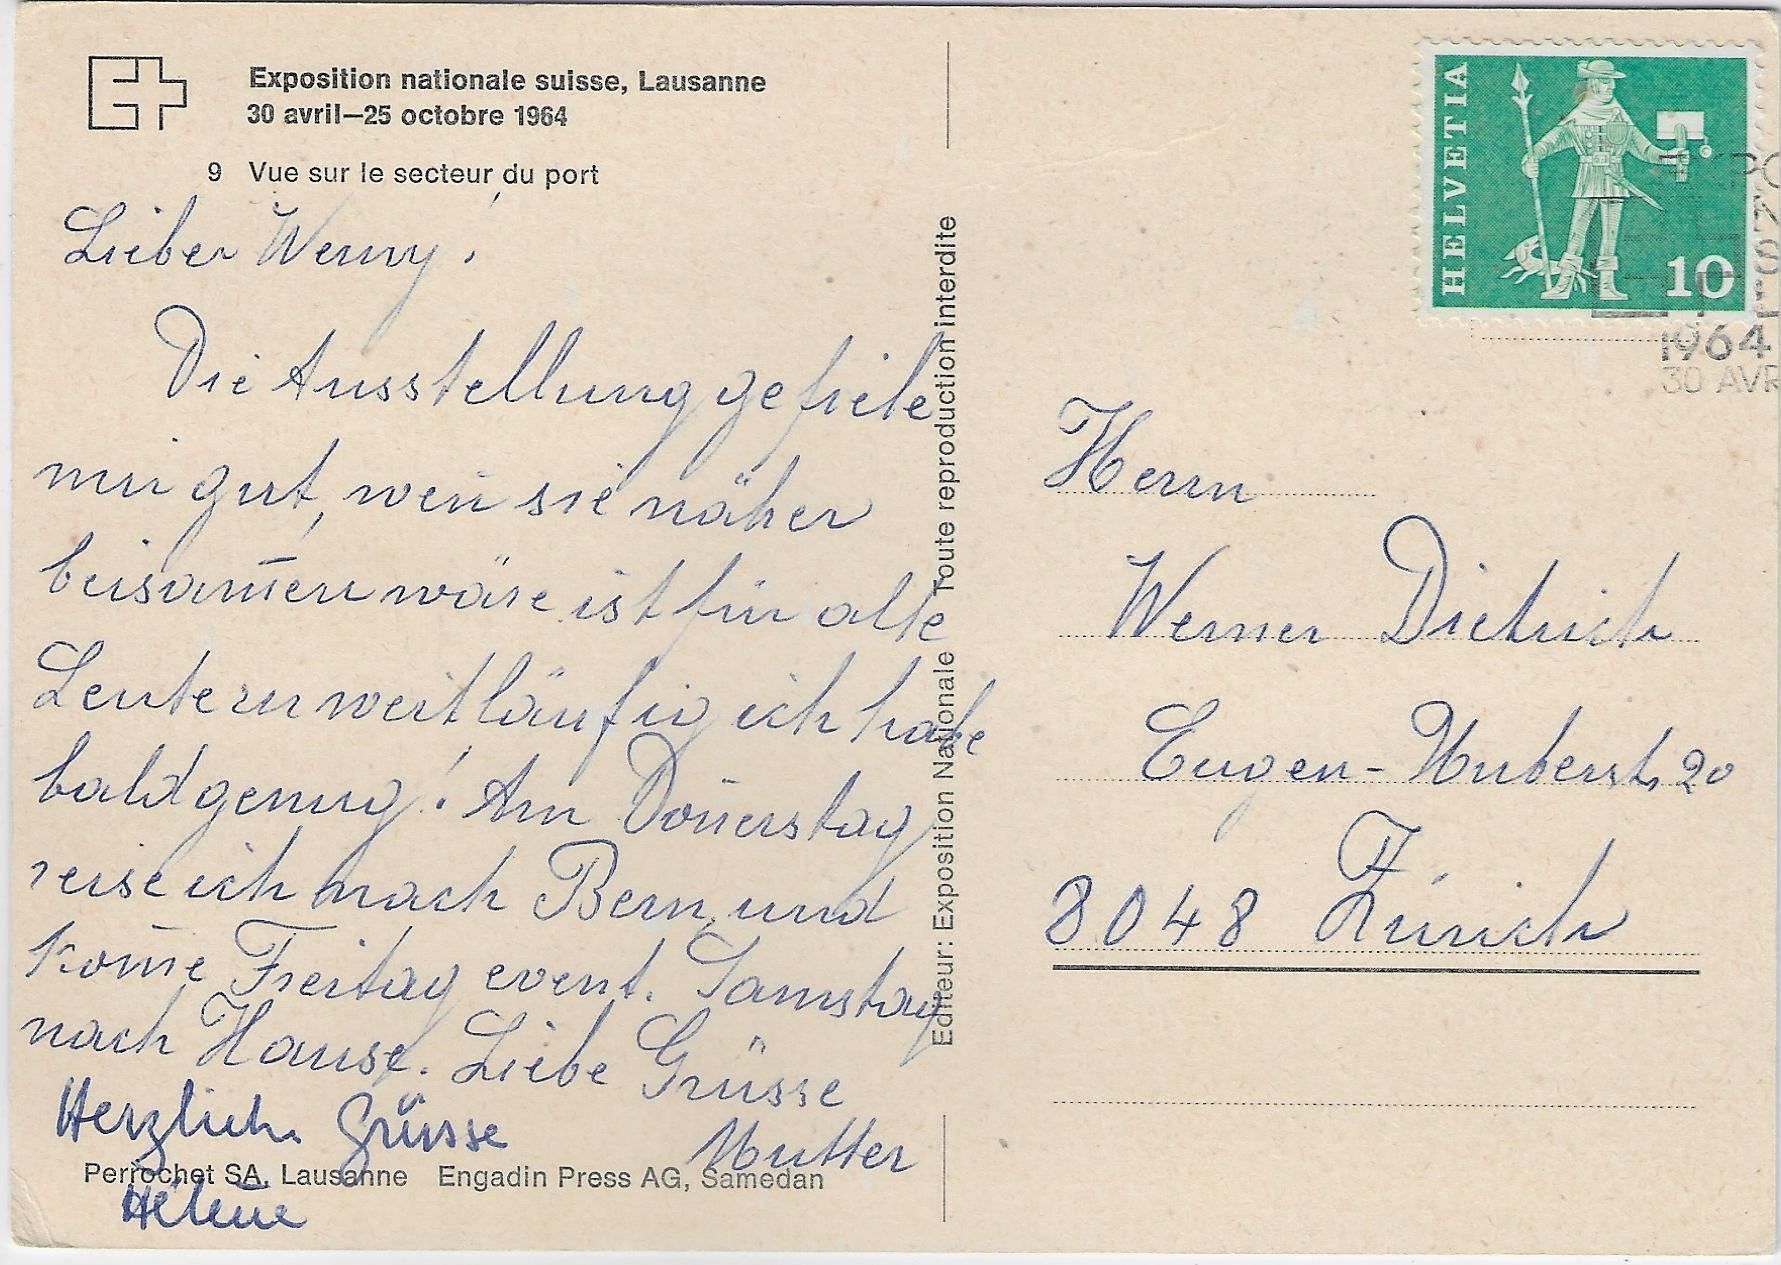 Exposition nationale suisse, Lausanne
30 avril—25 octobre 1964
9 Vue sur le secteur du port
Lieber Werny!
Die Ausstellung gefiele
mir gut, weñ sie näher
beisam̄en wäre ist für alte
Leute zu weitläufig ich habe
bald genug! Am Doñerstag
reise ich nach Bern, und
kom̄e Freitag event. Samstag
nach Hause. Liebe Grüsse
Mutter
Herzliche Grüsse
Hélène
Perrochet SA, Lausanne Engadin Press AG, Samedan
Editeur: Exposition Nationale Toute reproduction interdite
HELVETIA
10
1964
30 AVR
Herrn
Werner Dietrich
Eugen-Huberst. 20
8048 Zürich